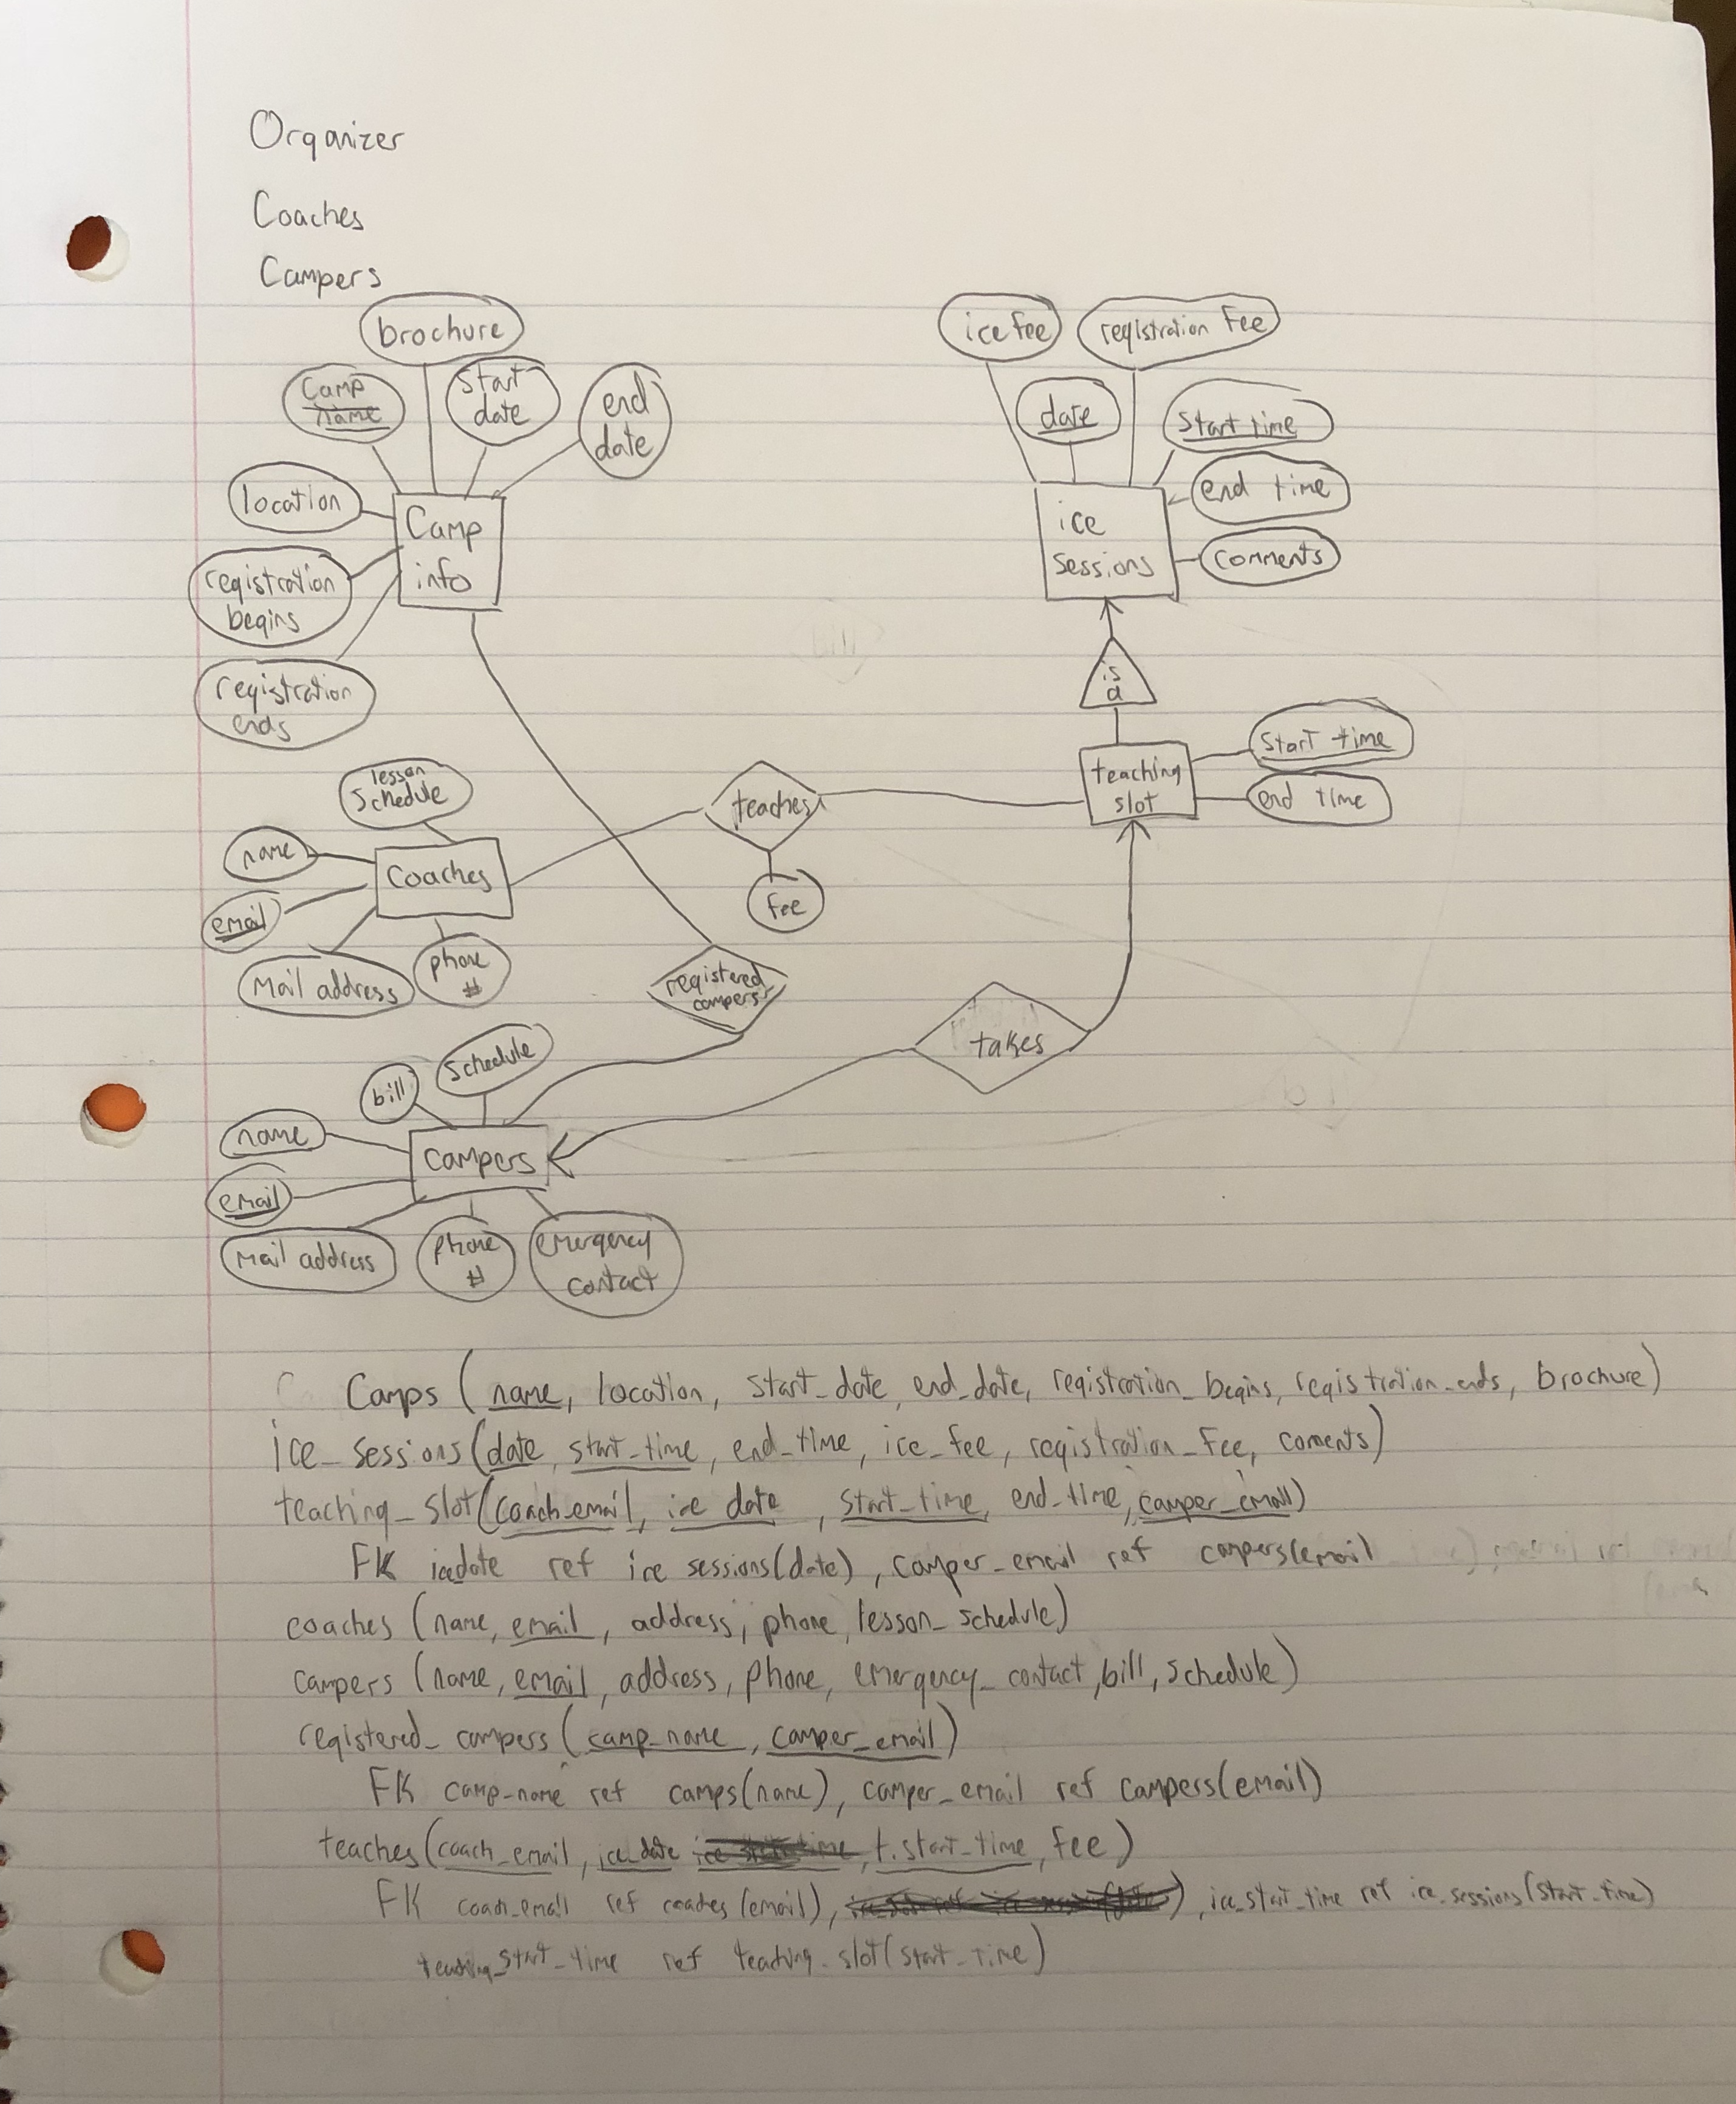 Organizer
Coaches
Campers
brochure
Camp
name
start
date
end
date
location
Camp
info
registration
begins
registration
ends
ice fee
registration Fee
date
start time
end time
comments
ice
sessions
is
a
teaching
slot
start time
end time
lesson
schedule
name
email
Mail address
phone
#
Coaches
teaches
fee
registered
campers
takes
schedule
bill
name
email
Mail address
phone
#
emergency
contact
Campers
Camps (name, location, start_date, end_date, registration_begins, registration_ends, brochure)
ice_sessions(date, start_time, end_time, ice_fee, registration_Fee, coments)
teaching_slot(coach_email, ice date, start_time, end_time, camper_email)
FK icedate ref ice sessions(date), camper_email ref campers(email
coaches (name, email, address, phone, lesson_schedule)
campers (name, email, address, phone, emergency_contact, bill, schedule)
registered_campers (camp_name, camper_email)
FK camp_name ref camps(name), camper_email ref campers(email)
teaches(coach_email, ice_date, t.start_time, fee)
FK coach_email ref coaches (email), ice_start_time ref ice_sessions(start_time)
teaching_start_time ref teaching_slot(start_time)